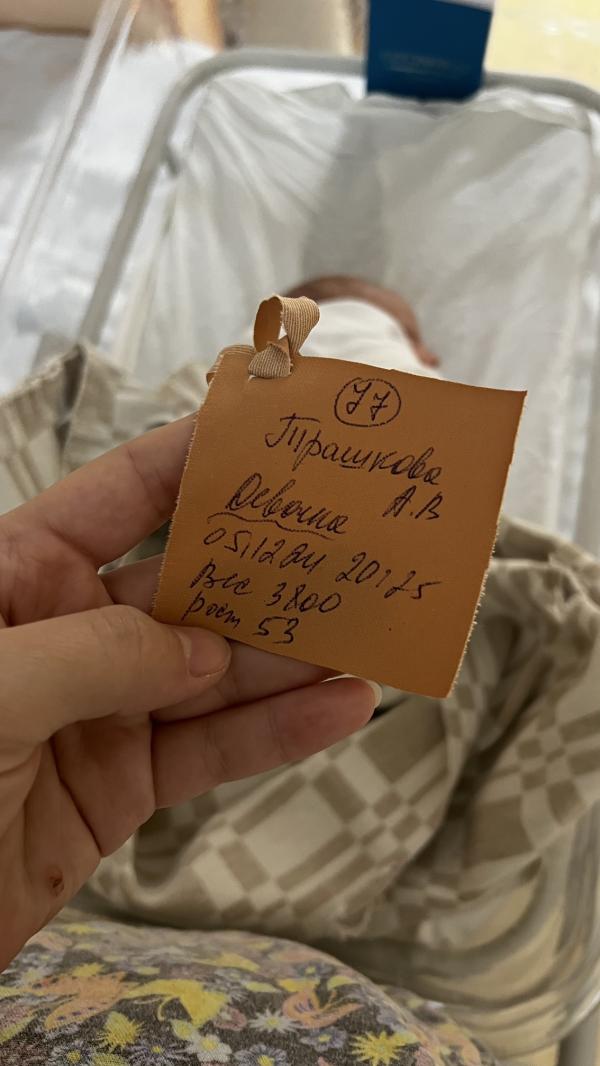 77
Трашкова
А.В
Девочка
05,12 24 20:25
Вес 3800
рост 53